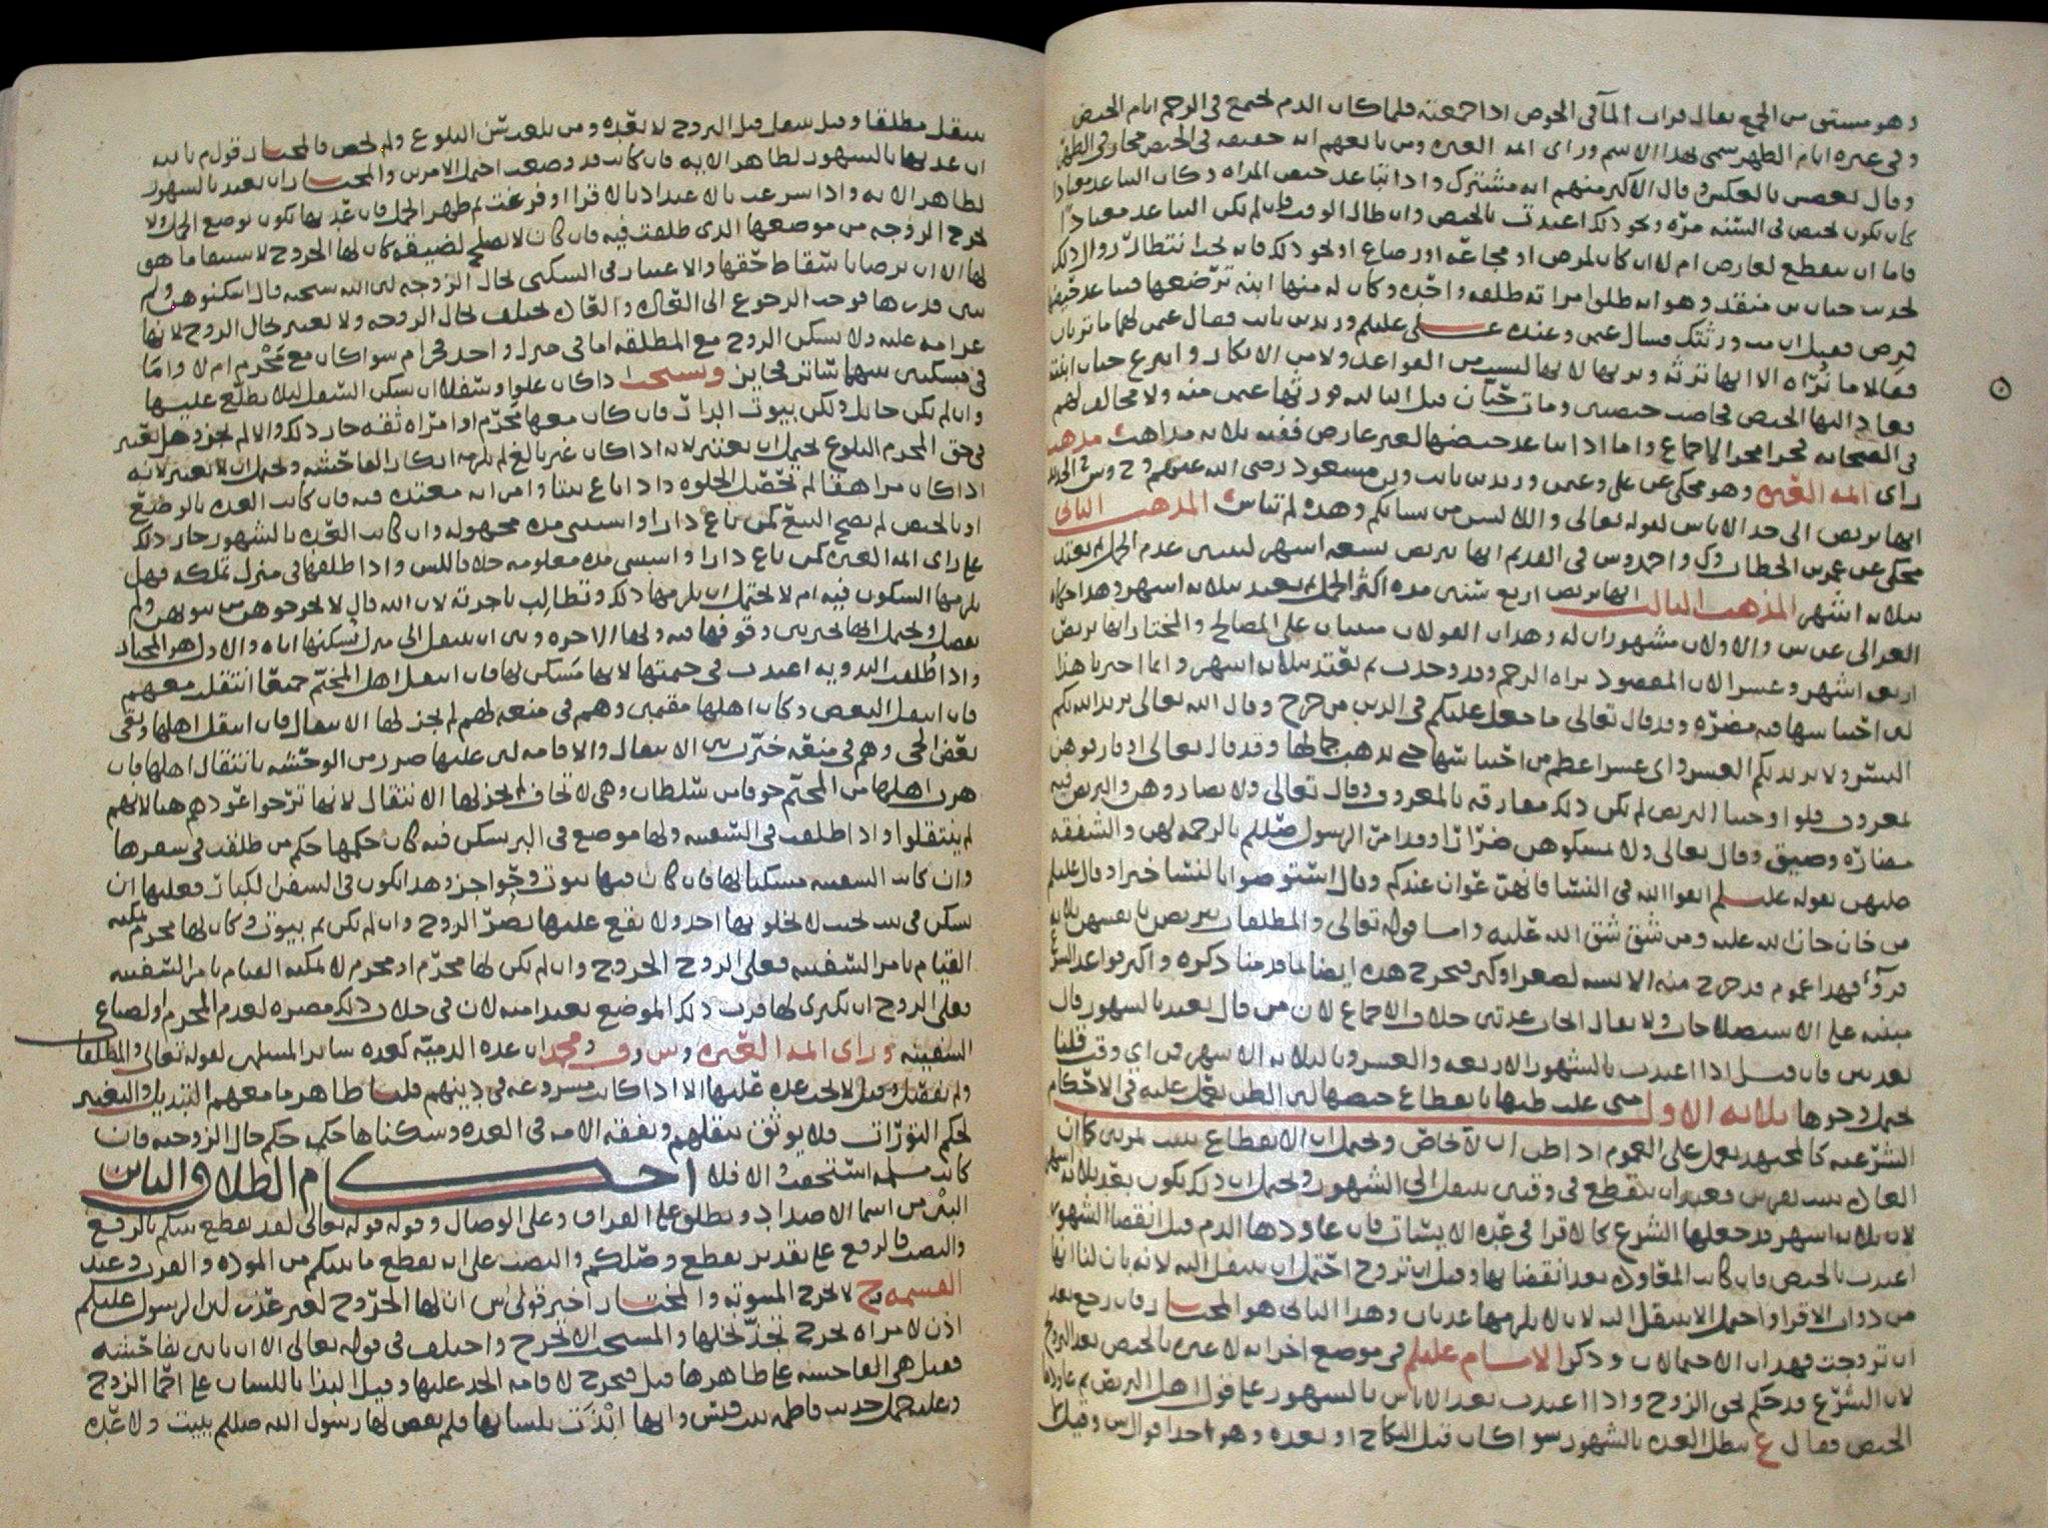 وهو مستق من الجمع يقال قرات الماء في الحوض اذا جمعته فلما كان الدم يجتمع في الرحم ايام الحيض
وفي غيره ايام الطهر سمي بهذا الاسم وراى ايمه العتره وس وتابعهم انه حقيقه في الحيض مجاز في الطهر
وقال بعض بالعكس وقال الاكثر منهم انه مشترك واذا تباعد حيض المراه وكان التباعد معتادا
كان يكون تحيض في السنه مره ونحو ذلك اعتدت بالحيض وان طال الوقت فان لم يكن التباعد معتادا
فاما ان ينقطع لعارض ام لا ان كان لمرض او مجاعه او رضاع او نحو ذلك فانه يجب انتظار زوال ذلك
لحديث حبان بن منقذ وهو انه طلق امراته طلقه واحده وكان له منها ابنه ترضعها فتباعد حيضها
فمرض فقيل ان مت ورثتك فسال عثمن وعنده علي عليلم وزيد بن ثابت فقال عثمن لهما ما تريان
فقالا ما نراه الا انها ترثه ويرثها لانها ليست من القواعد ولا من الابكار وانتزع حبان ابنته
فعاد اليها الحيض فحاضت حيضتين ومات حبان قبل الثالثه فورثها عثمن منه ولا مخالف لهم
في الصحابه فجرا مجرا الاجماع واما اذا تباعد حيضها لغير عارض ففيه ثلاثه مذاهب مذهب
راى ايمه العتره وهو محكي عن علي وعثمن وزيد بن ثابت وبن مسعود رضي الله عنهم وح وس الجديد
انها تربص الى حد الاياس لقوله تعالى واللا يئسن من نسائكم وهذه لم تيأس المذهب الثاني
محكي عن عمر بن الخطاب وك واحد وس في القديم انها تربص تسعه اشهر ليتبين عدم الحمل ثم تعتد
بثلاثه اشهر المذهب الثالث انها تربص اربع سنين مده اكثر الحمل ثم تعتد بثلاثه اشهر وهذا حكاه
الغزالي عن س والاولان مشهوران له وهذان القولان مبنيان على المصالح والمختار انها تربص
اربعه اشهر وعشر الان المقصود براه الرحم وقد وجدت ثم تعتد بثلاثه اشهر وانما اخترنا هذا
لان احتباسها فيه مضره وقد قال تعالى ما جعل عليكم في الدين من حرج وقال الله تعالى يريد الله بكم
اليسر ولا يريد بكم العسر واي عسر اعظم من احتباسها حتى يذهب جمالها وقد قال تعالى او فارقوهن
بمعروف فلو اوجبنا التربص لم تكن ذلك مفارقه بالمعروف وقال تعالى ولا تضاروهن والتربص فيه
مضاره وضيق وقال تعالى ولا تمسكوهن ضرارا وقد امر الرسول صللم بالرحمه لهن والشفقه
عليهن بقوله عليلم اتقوا الله في النسا فانهن عوان عندكم وقال استوصوا بالنسا خيرا وقال عليلم
من خان خان الله عليه ومن شق شق الله عليه واما قوله تعالى والمطلقات يتربصن بانفسهن ثلاثه
قروء فهذا عموم قد خرج منه الايسه لصغر او كبر فتخرج هذه ايضا لما قدمنا ذكره واكثر قواعد الشرع
مبنيه على الاستصلاحات ولا يقال الحادثه خلاف الاجماع لان من قال تعتد بالشهور قال
بعد س فان قيل اذا اعتدت بالشهور الاربعه والعشر وبالثلاثه الاشهر من اي وقت قلنا
يحتمل وجوها ثلاثه الاول متى غلب ظنها بانقطاع حيضها لان الظن يعمل عليه في الاحكام
الشرعيه كالمجتهد يعمل على العموم اذا ظن ان لا تخاص ويحتمل ان الانقطاع بسبب لمرتين كما ان
العاده تثبت بمرتين فبعد ان ينقطع في وقتين تنتقل الى الشهور ويحتمل ان ذلك يكون بعد ثلاثه اشهر
لان ثلاثه اشهر قد جعلها الشرع كالاقرا في عده الايسات فان عاودها الدم قبل انقضا الشهور
اعتدت بالحيض فان كانت المعاوده بعد انقضائها وقبل ان تزوج احتمل ان تنتقل اليه لانه بان لنا انها
من ذوات الاقرا واحتمل الا تنتقل اليه لان لا يلزمها عدتان وهذا الثاني هو المختار فان رجع بعد
ان تزوجت فهذان الاحتمالان وذكر الامام عليلم في موضع اخر انه لا عبره بالحيض بعد التزوج
لان الشرع قد حكم بحق الزوج واذا اعتدت بعد الاياس بالشهور على قول اهل التربص ثم عاودها
الحيض فقال ع تبطل العده بالشهور سوا كان قبل النكاح او بعده وهو احد اقوال س وقيل
تنتقل مطلقا وقيل تنتقل قبل التزوج لا بعده ومن بلغت سن البلوغ ولم تحض فالمختار قول م بالله
ان عدتها بالشهور لظاهر الايه فان كانت قد وضعت احتمل الامرين والمختار ان تعتد بالشهور
لظاهر الايه واذا شرعت بالاعتداد بالاقرا او فرغت ثم ظهر الحمل فان عدتها تكون بوضع الحمل ولا
تخرج الزوجه من موضعها الذي طلقت فيه فان كان لا يصلح لضيقه كان لها الخروج لاستيفا ما هو
لها الا ان ترضا باسقاط حقها والاعتبار في السكنى بحال الزوجه لان الله سبحنه قال اسكنوهن ولم
يبين قدرها فوجب الرجوع الى العاده والعاده تختلف بحال الزوجه ولا يعتبر بحال الزوج لانها
غرامه عليه ولا يسكن الزوج مع المطلقه اما في منزل واحد فحرام سوا كان مع محرم ام لا واما
في مسكنين بينهما ساتر فجايز ويستحب اذا كان علو وسفلا ان تسكن السفل ليلا يطلع عليها
وان لم يكن حائل ولكن بيوت الدار فان كان معها محرم او امراه ثقه جاز ذلك والا لم يجز وهل يعتبر
في حق المحرم البلوغ يحتمل ان يعتبر لانه اذا كان غير بالغ لم يلزمه انكار الفاحشه ويحتمل ان لا يعتبر لانه
اذا كان مراهقا لم تحصل الخلوه واذا باع بيتا وامراته معتده فيه فان كانت العده بالوضع
او بالحيض لم يصح البيع كمن باع دارا واستثنى مده مجهوله وان كانت العده بالشهور جاز ذلك
على راى ايمه العتره كمن باع دارا واستثنى مده معلومه خلافا لس واذا طلقها في منزل تملكه فهل
يلزمها السكون فيه ام لا يحتمل ان يلزمها ذلك وتطالب باجرته لان الله قال لا تخرجوهن من بيوتهن ولم
يفصل ويحتمل انها تخير بين وقوفها فيه ولها الاجره وبين ان تنتقل الى منزل يسكنها اياه والاول هو المختار
واذا طلقت البدويه اعتدت في خيمتها لانها مسكن لها فان انتقل اهل المخيم جميعا انتقلت معهم
فان انتقل البعض وكان اهلها مقيمين وهم في منعه لهم لم يجز لها الانتقال فان انتقل اهلها وبقي
بعض الحي وهم في منعه خيرت بين الانتقال والاقامه لان عليها ضرر من الوحشه بانتقال اهلها فان
هرب اهلها من المخيم خوفا من سلطان وهي لا تخاف لم يجز لها الانتقال لانها ترجوا عودهم هنا لانهم
لم ينتقلوا واذا طلقت في السفينه ولها موضع في البر يسكن فيه كان حكمها حكم من طلقت في سفرها
وان كانت السفينه مسكنا لها فان كان فيها بيوت وحواجز وهذا يكون في السفن الكبار فعليها ان
تسكن في بيت بحيث لا يخلو بها احد ولا يقع عليها بصر الزوج وان لم يكن ثم بيوت وكان لها محرم يمكنه
القيام بامر السفينه فعلى الزوج الخروج وان لم يكن لها محرم او محرم لا يمكنه القيام بامر السفينه
فعلى الزوج ان يكتري لها قرب ذلك الموضع بعيدا منه لان في خلاف ذلك مضره لعدم المحرم او لضياع
السفينه وراى ايمه العتره وس وف ومحمد ان عده الذميه كعده ساير المسلمين لقوله تعالى والمطلقات
ولم يفصل وقيل لا يجب عده عليها الا اذا كانت مشروعه في دينهم قلنا ظاهر ما معهم التبديل والتغيير
لحكم التورات فلا يوثق بنقلهم ونفقه الامه في العده وسكناها حكمه حكم حال الزوجيه فان
كانت مسلمه استحقت والا فلا احكام الطلاق البائن
البين من اسما الاضداد ويطلق على الفراق وعلى الوصال وقوله قوله تعالى لقد تقطع بينكم بالرفع
والنصب فالرفع على تقدير تقطع وصلكم والنصب على انه تقطع ما بينكم من الموده والقرب وعند
القسميه وح لا تخرج المبتوته والمختار اخير قولي س ان لها الخروج لغير عذر لان الرسول عليلم
اذن لامراه تخرج تجذ نخلها والمستحب الا تخرج واختلف في قوله تعالى الا ان ياتين بفاحشه
فقيل هي الفاحشه على ظاهرها قيل فتخرج لاقامه الحد عليها وقيل البذا باللسان على احما الزوج
وعليه حمل حديث فاطمه بنت قيس وانها ابذت بلسانها فلم يفض لها رسول الله صللم ببيت ولا عده